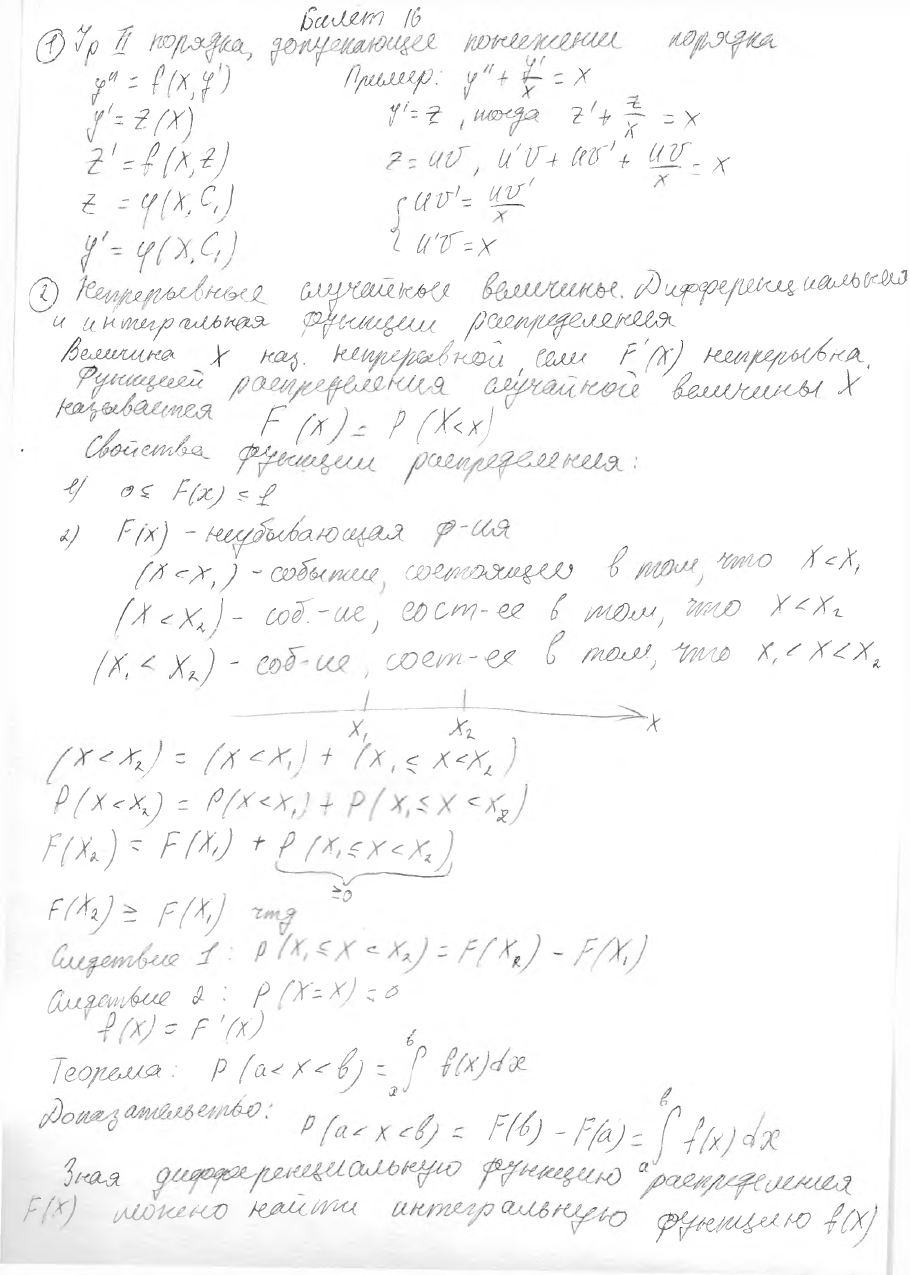 Билет 16
① Ур II порядка, допускающее понижении порядка
y'' = f(x,y')    Пример: y'' + y'/x = x
y' = z(x)    y' = z, тогда z' + z/x = x
z' = f(x,z)    z = uv, u'v + uv' + uv/x = x
z = φ(x,C₁)    { uv' = uv'/x
y' = φ(x,C₁)    { u'v = x
② Непрерывные случайные величины. Дифференциальная
и интегральная функции распределения
Величина X наз. непрерывной, если F'(x) непрерывна.
Функцией распределения случайной величины X
называется F(x) = P(X<x)
Свойства функции распределения:
1) 0 ≤ F(x) ≤ 1
2) F(x) – неубывающая ф-ия
(X < x₁) – событие, состоящее в том, что X < x₁
(X < x₂) – соб.-ие, сост-ее в том, что X < x₂
(x₁ < x₂) – соб-ие, сост-ее в том, что x₁ < X < x₂
x₁ x₂ x
(X < x₂) = (X < x₁) + (x₁ ≤ X < x₂)
P(X < x₂) = P(X < x₁) + P(x₁ ≤ X < x₂)
F(x₂) = F(x₁) + P(x₁ ≤ X < x₂)
≥0
F(x₂) ≥ F(x₁) чтд
Следствие 1: P(x₁ ≤ X < x₂) = F(x₂) – F(x₁)
Следствие 2: P(X = x) = 0
f(x) = F'(x)
Теорема: P(a < x < b) = ∫ₐᵇ f(x)dx
Доказательство:
P(a < x < b) = F(b) – F(a) = ∫ₐᵇ f(x)dx
Зная дифференциальную функцию распределения
F(x) можно найти интегральную функцию f(x)